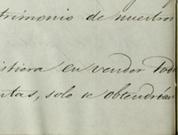 trimonio de nuestros
istiera en vender todo
ntas, solo se obtendrian